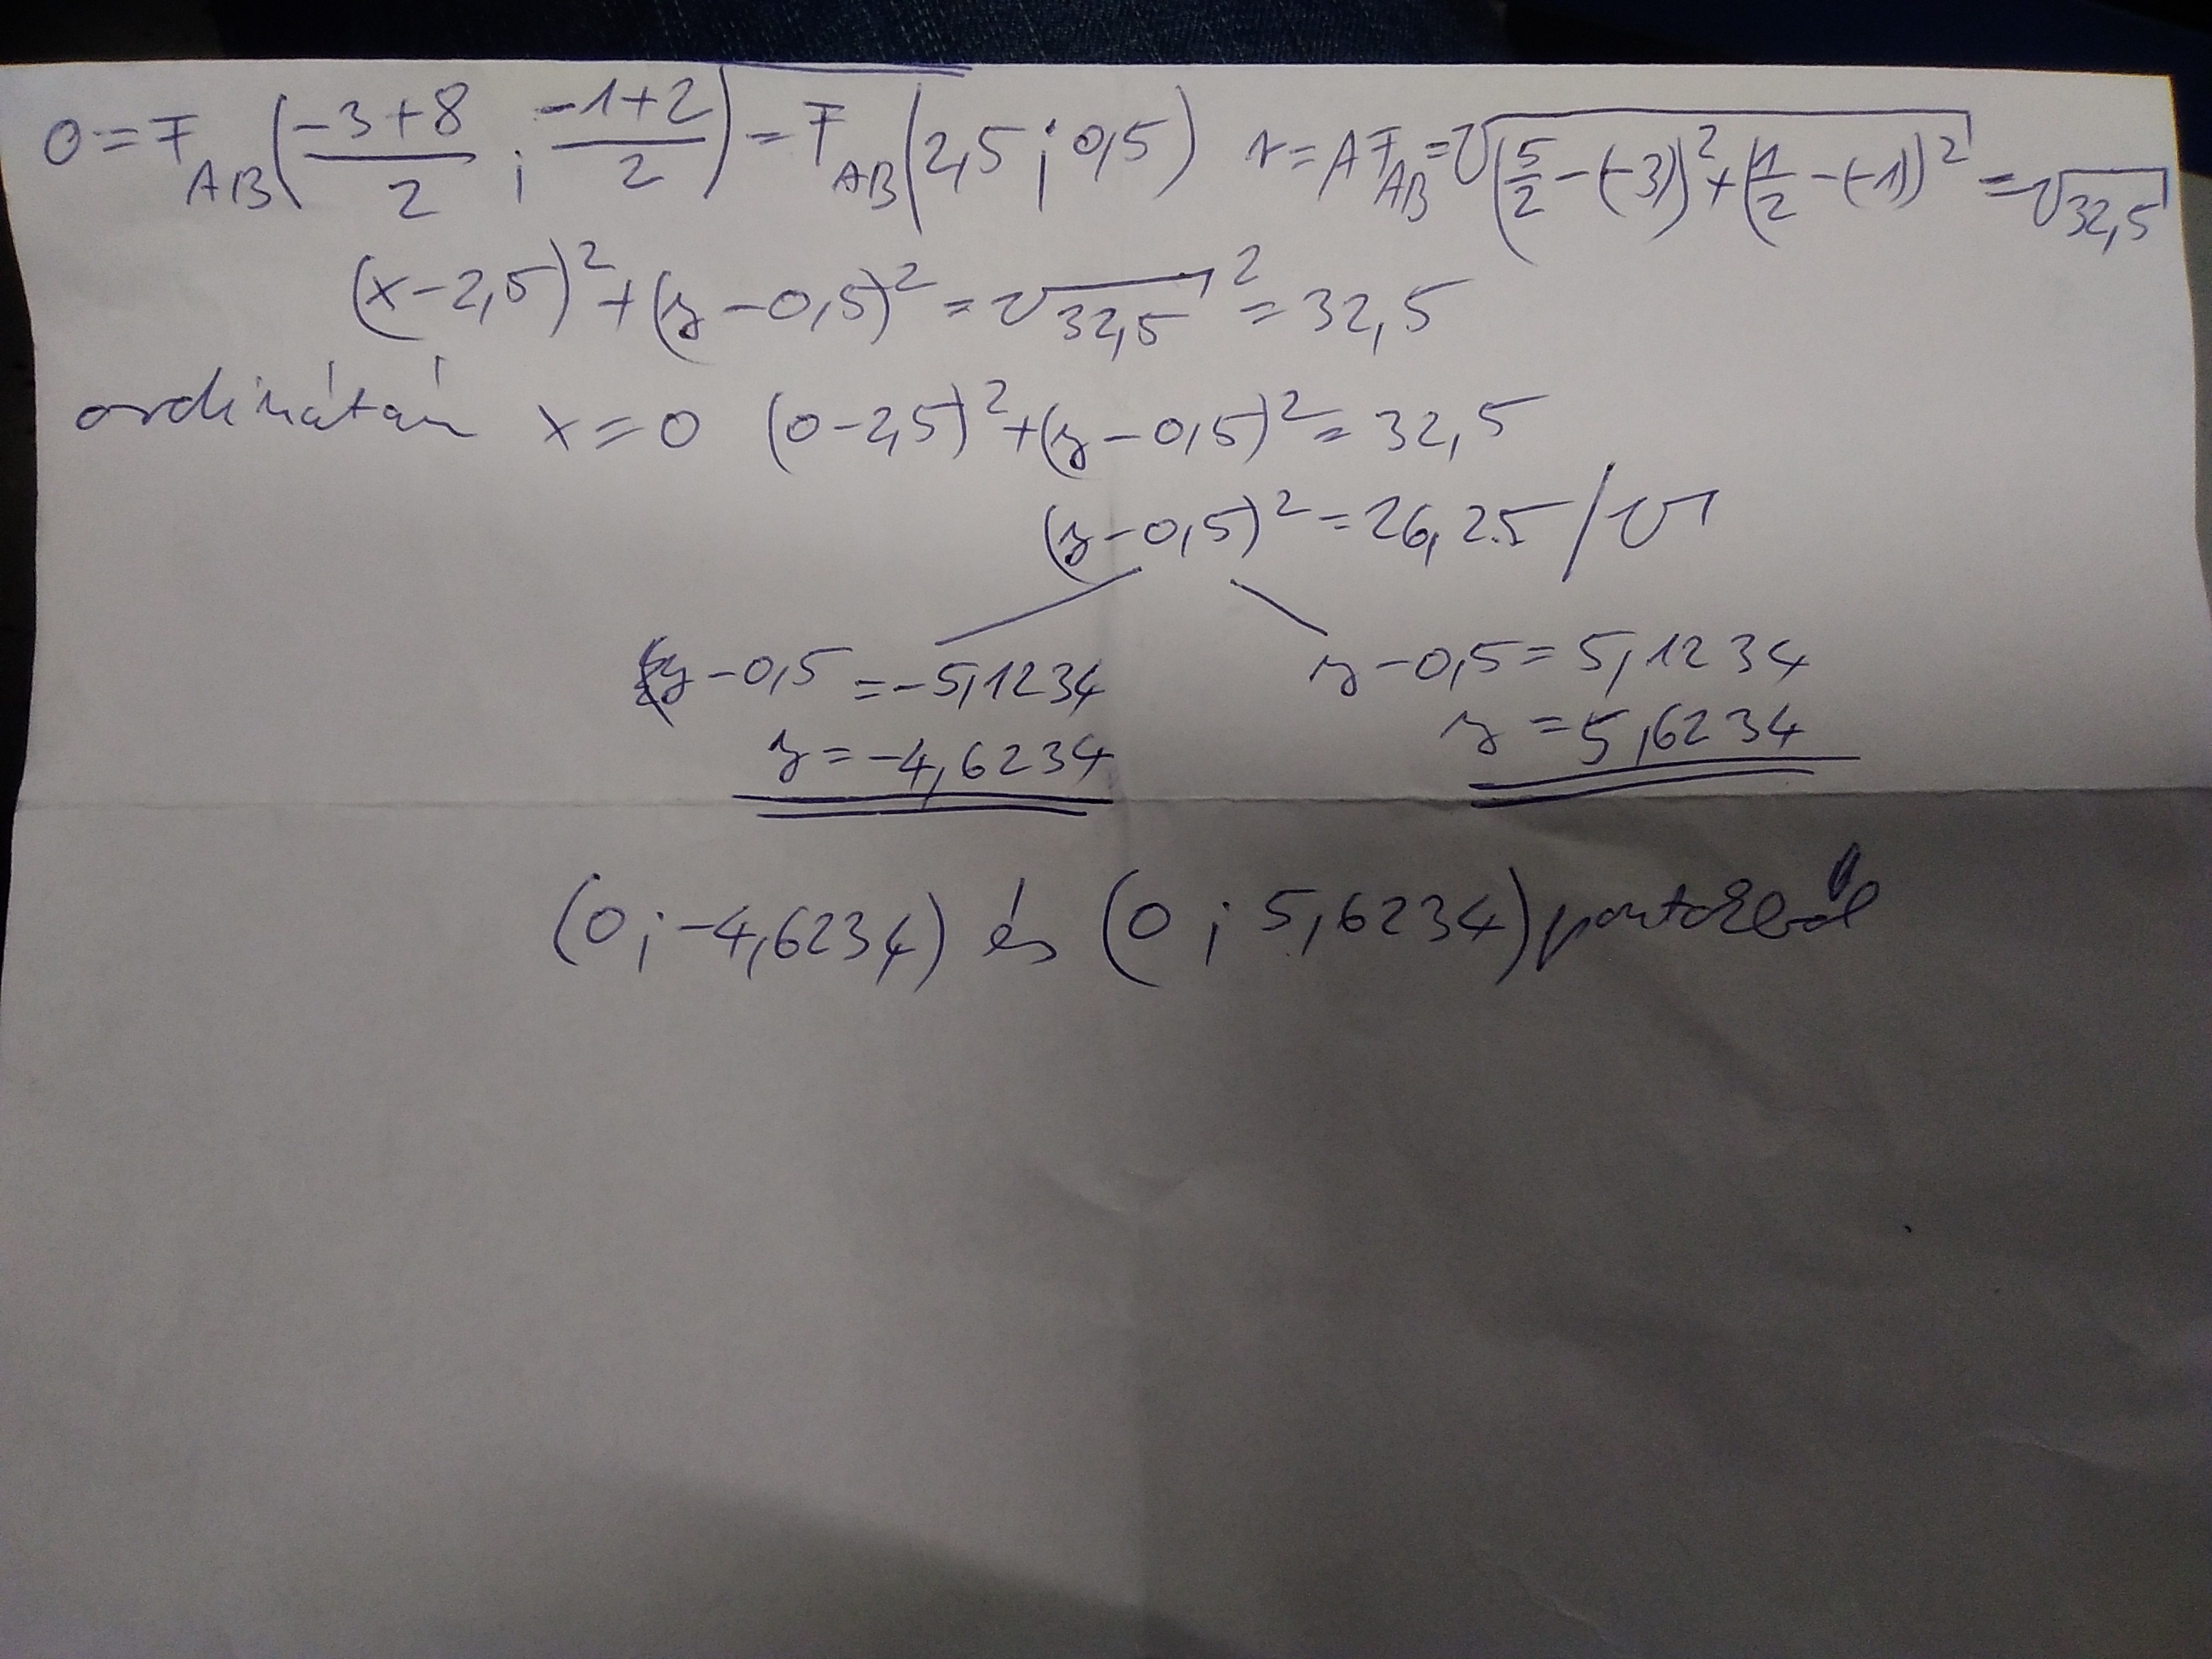 0=F_AB(-3+8/2 ; -1+2/2)=F_AB(2,5;0,5) r=AF_AB=√((5/2-(-3))²+(1/2-(-1))²)=√32,5
(x-2,5)²+(y-0,5)²=√32,5²=32,5
ordinátán x=0 (0-2,5)²+(y-0,5)²=32,5
(y-0,5)²=26,25/√
y-0,5=-5,1234 y-0,5=5,1234
y=-4,6234 y=5,6234
(0;-4,6234) és (0;5,6234) pontokból